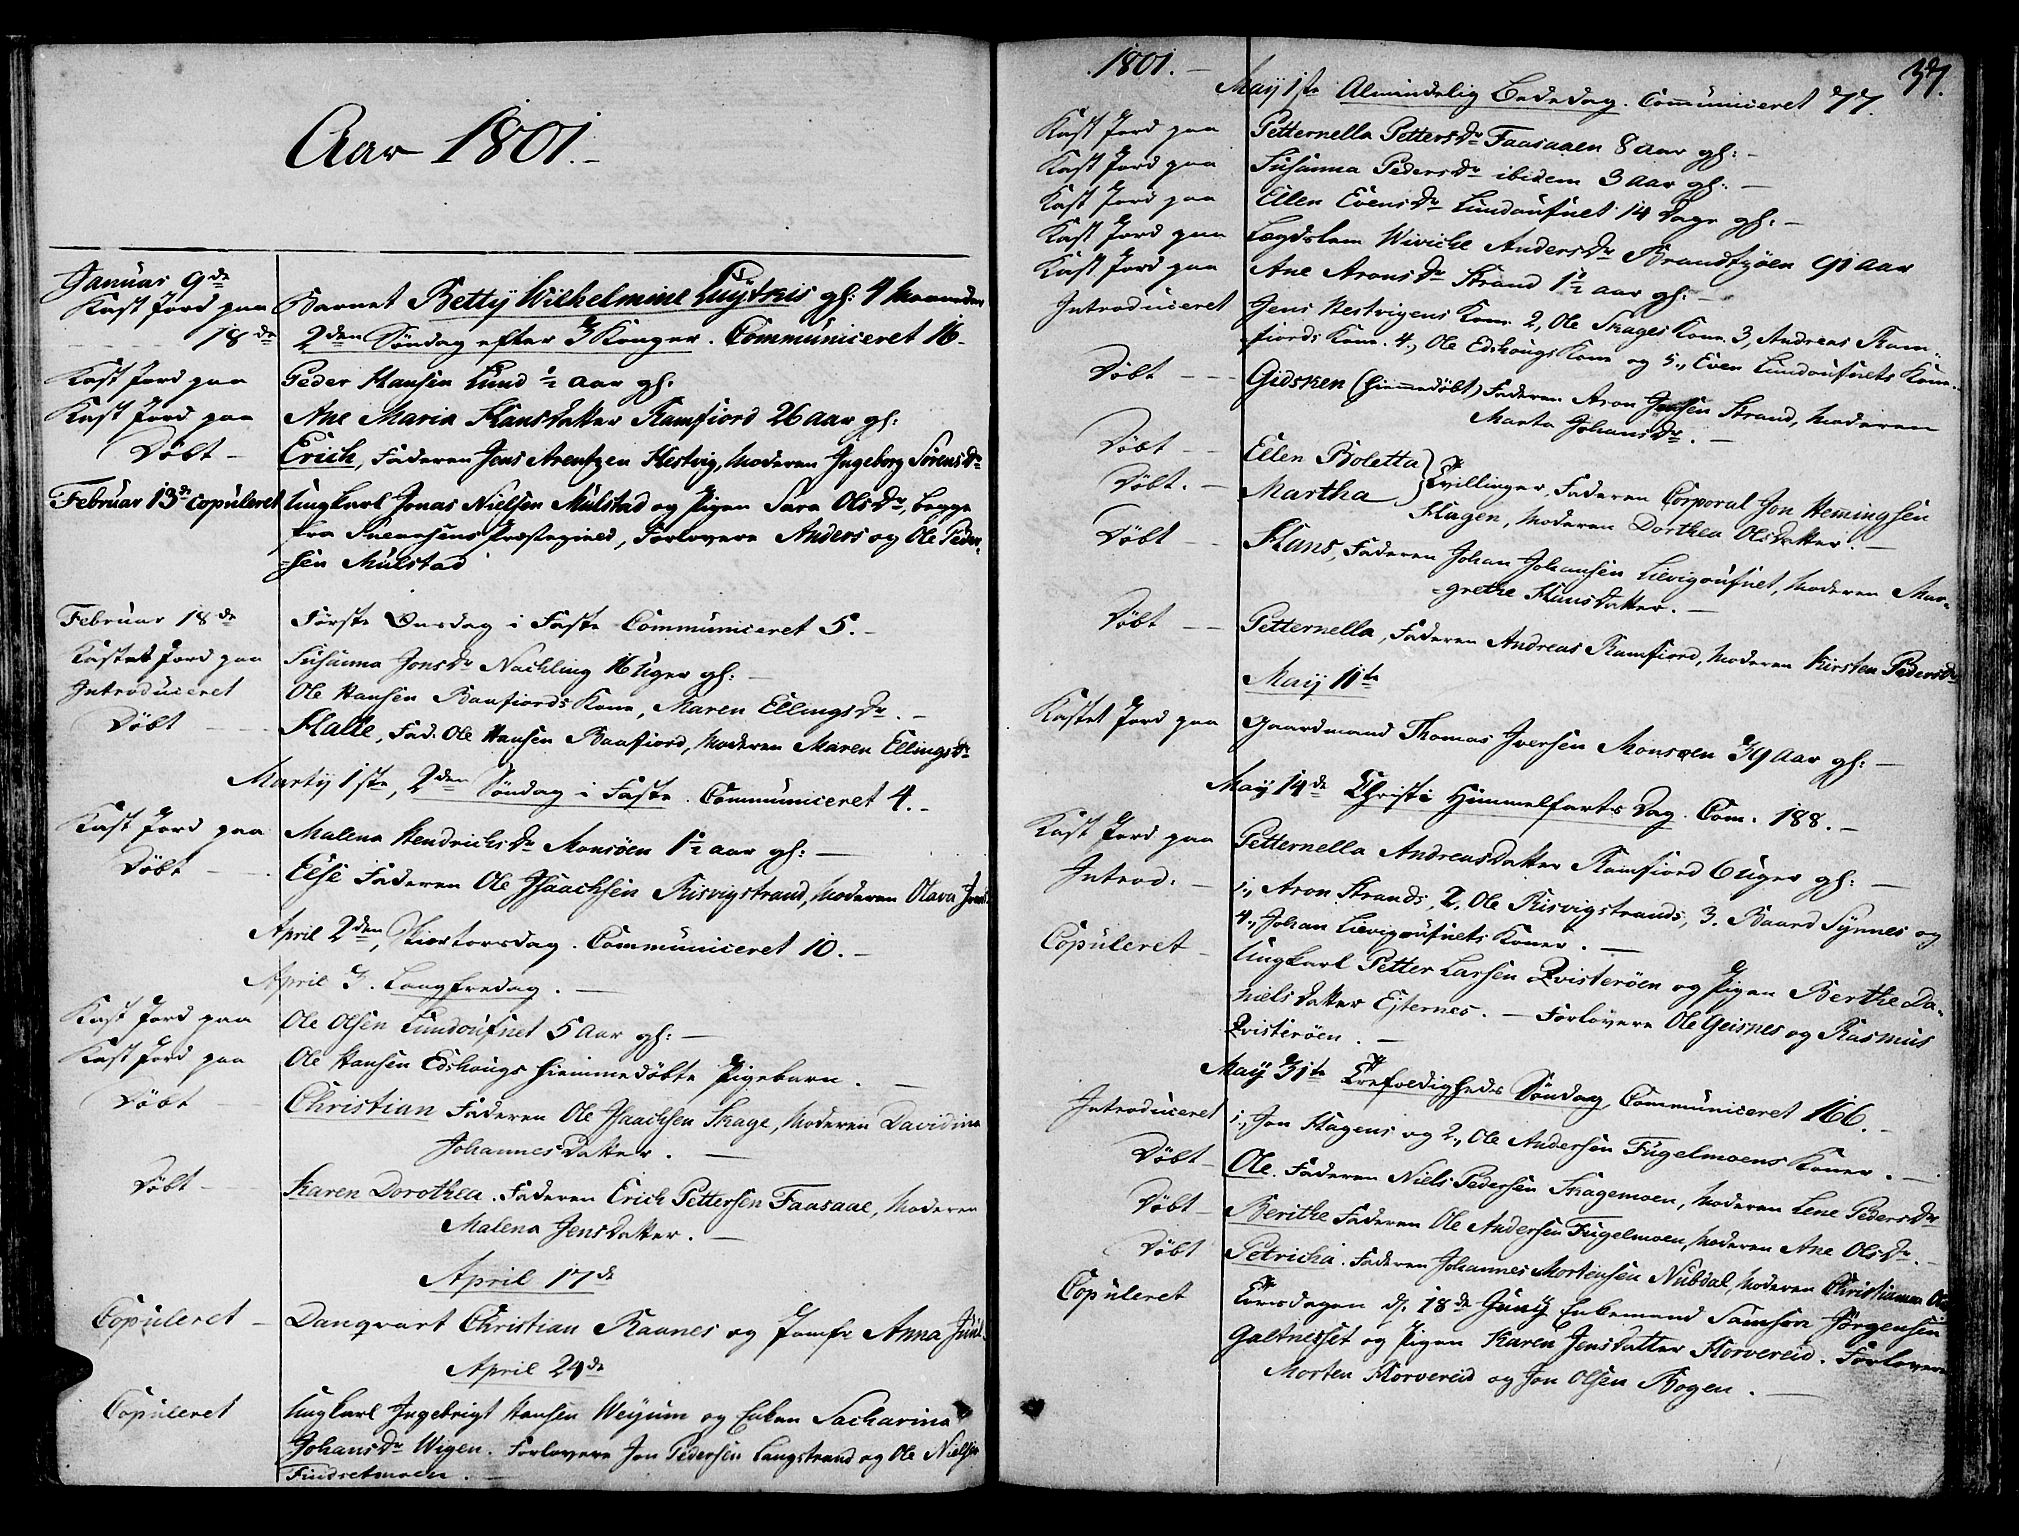 Aar 1801.-
Januar 9de
Kast Jord paa Barnet Betty Wilhelmine gl: 4 Maaneder
18de 2den Søndag efter 3 Konger. Communiceret 16-
Kast Jord paa Peder Hansen Lund ½ aar gl:
Kast Jord paa Ane Maria Hansdatter Ramfiord 26 aar gl:
Døbt - Erich, Faderen Jens Arentzen Hestvig, Moderen Ingeborg Sørensdr
Februar 13de copuleret Ungkarl Jonas Nielsen Mulstad og Pigen Sara Olsdr, begge
fra Præstegield, Forlovere Anders og Ole Peder-
-sen Mulstad
Februar 18de Første Onsdag i Faste Communiceret 5.-
Kastet Jord paa Susanna Jonsdr Nachling 16 Uger gl: -
Introduceret Ole Hansen Baafiords Kone, Maren Ellingsdr. -
Døbt - Halle, Fad. Ole Hansen Baafiord, Moderen Maren Ellingsdr
Marty 1ste, 2den Søndag i Faste. Communiceret 4.-
Kast Jord paa Malena Hendrichsdr Monsøen 1½ aar gl: -
Døbt - Else Faderen Ole Isaachsen Risvigstrand, Moderen Olava
April 2den, Skiertorsdag. Communiceret 10.-
April 3. Langfredag. -
Kast Jord paa Ole Olsen Lundoufnet 5 Aar gl: -
Kast Jord paa Ole Hansen Edshougs hiemmedøbte Pigebarn. -
Døbt - Christian Faderen Ole Isaachsen Skage, Moderen Davidina
Johannesdatter. -
Døbt - Karen Dorothea. Faderen Erich Pettersen Faasaae, Moderen
Malena Jensdatter. -
April 17de
Copuleret - Danqvart Christian Raanes og Jomfr Anna
April 24de
Copuleret Ungkarl Ingebrigt Hansen Weyum og Enken Sacharina
Johansdr Wigen. Forlovere Jon Pedersen Langstrand og Ole Nielsen
Findsetmoen. -
1801.-
37.
May 1ste Almindelig Bededag. Communiceret 77.
Kast Jord paa Petternella Pettersdr Faasaaen 8 aar gl: -
Kast Jord paa Susanna Pedersdr ibidem 3 aar gl: -
Kast Jord paa Ellen Evensdr Lundoufnet 14 Dage gl: -
Kast Jord paa Lægdslem Wiviche Andersdr Brandtzøen 91 aar
Kast Jord paa Ane Aronsdr Strand 1½ aar gl: -
Introduceret Jens Hestvigens Kone 2, Ole Skages Kone 3, Andreas Ram-
-fiords Kone. 4., Ole Edshougs Kone og 5., Even Lundoufnets Kone.
Døbt - - Gidsken (hiemmedøbt) Faderen Aron Jensen Strand, Moderen
Marta Johansdr. -
Døbt - - Ellen Boletta
Døbt. - Martha } Tvillinger, Faderen Corporal Jon Hemingsen
Hagen, Moderen Dorthea Olsdatter. -
Døbt - - Hans, Faderen Johan Johansen Lievigoufnet, Moderen Mar-
-grethe Hansdatter. -
Døbt - - Petternella, Faderen Andreas Ramfiord, Moderen Kirsten Pedersdr
May 11te
Kastet Jord paa Gaardmand Thomas Iversen Monsøen 39 aar gl: -
May 14de Christi Himmelfarts Dag. Com. 188.-
Kast Jord paa Petternella Andreasdatter Ramfiord 6 Uger gl: -
Introd: - 1., Aron Strands, 2. Ole Risvigstrands, 3. Baard Synnes og
4., Johan Lievigoufnets Koner. -
Copuleret - Ungkarl Petter Larsen Qvisterøen og Pigen Berthe Da-
nielsdatter Efternes. - Forlovere Ole Geisnes og Rasmus
Qvisterøen. -
May 31te Trefoldigheds Søndag, Communiceret 166.-
Introduceret 1., Jon Hagens og 2., Ole Andersen Fugelmoens Koner. -
Døbt - Ole. Faderen Niels Pedersen Skagemoen, Moderen Lene Pedersdr
Døbt - Berithe Faderen Ole Andersen Fugelmoen, Moderen Ane Olsdr. -
Døbt Petricha. Faderen Johannes Mortensen Nubdal, Moderen Christianna
Copuleret Torsdagen d. 18de Juny Enkemand Samson Jørgensen
Galtnesset og Pigen Karen Jensdatter Horvereid. Forlovere
Morten Horvereid og Jon Olsen Bogen. -